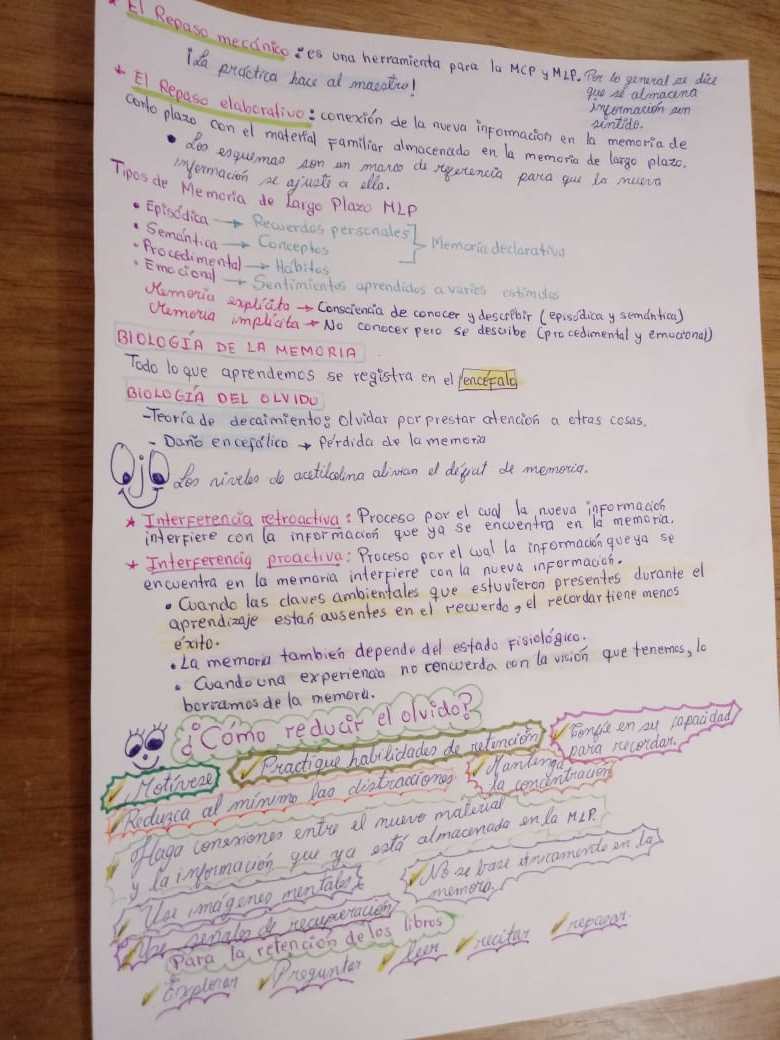 * El Repaso mecánico: es una herramienta para la MCP y MLP. Por lo general se dice
que se almacena
información sin
sentido.
¡La práctica hace al maestro!
* El Repaso elaborativo: conexión de la nueva información en la memoria de
corto plazo con el material familiar almacenado en la memoria de largo plazo.
• Los esquemas son un marco de referencia para que la nueva
información se ajuste a ella.
Tipos de Memoria de Largo Plazo MLP
• Episódica → Recuerdos personales
• Semántica → Conceptos
Memoria declarativa
• Procedimental → Hábitos
• Emocional → Sentimientos aprendidos a varios estímulos
Memoria explícita → Consciencia de conocer y describir (episódica y semántica)
Memoria implícita → No conocer pero se describe (procedimental y emocional)
BIOLOGÍA DE LA MEMORIA
Todo lo que aprendemos se registra en el encéfalo
BIOLOGÍA DEL OLVIDO
-Teoría de decaimiento: olvidar por prestar atención a otras cosas.
- Daño encefálico → Pérdida de la memoria
Ojo Los niveles de acetilcolina alivian el déficit de memoria.
* Interferencia retroactiva: Proceso por el cual la nueva información
interfiere con la información que ya se encuentra en la memoria.
* Interferencia proactiva: Proceso por el cual la información que ya se
encuentra en la memoria interfiere con la nueva información.
• Cuando las claves ambientales que estuvieron presentes durante el
aprendizaje están ausentes en el recuerdo, el recordar tiene menos
éxito.
• La memoria también depende del estado fisiológico.
• Cuando una experiencia no concuerda con la visión que tenemos, lo
borramos de la memoria.
¿Cómo reducir el olvido?
✓ Motívese
✓ Practique habilidades de retención
✓ Confíe en su capacidad
para recordar.
✓ Reduzca al mínimo las distracciones
✓ Mantenga
la concentración
✓ Haga conexiones entre el nuevo material
y la información que ya está almacenada en la MLP.
✓ Use imágenes mentales
✓ No se base únicamente en la
memoria
✓ Use señales de recuperación
Para la retención de los libros
✓ Explorar ✓ Preguntar ✓ leer ✓ recitar ✓ repasar.